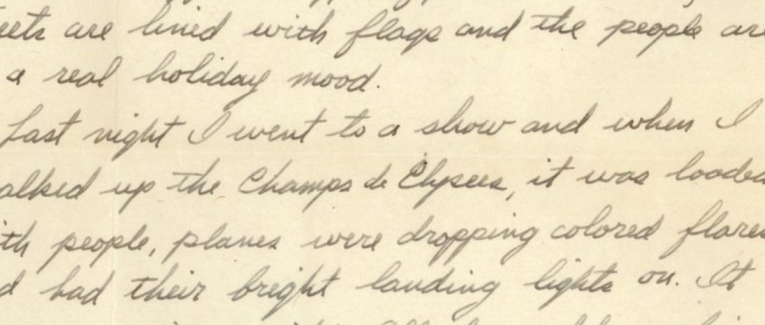 eets are lined with flags and the people are
a real holiday mood.
Last night I went to a show and when I
alked up the Champs de Elysees, it was loaded
ith people, planes were dropping colored flares
d had their bright landing lights on. It